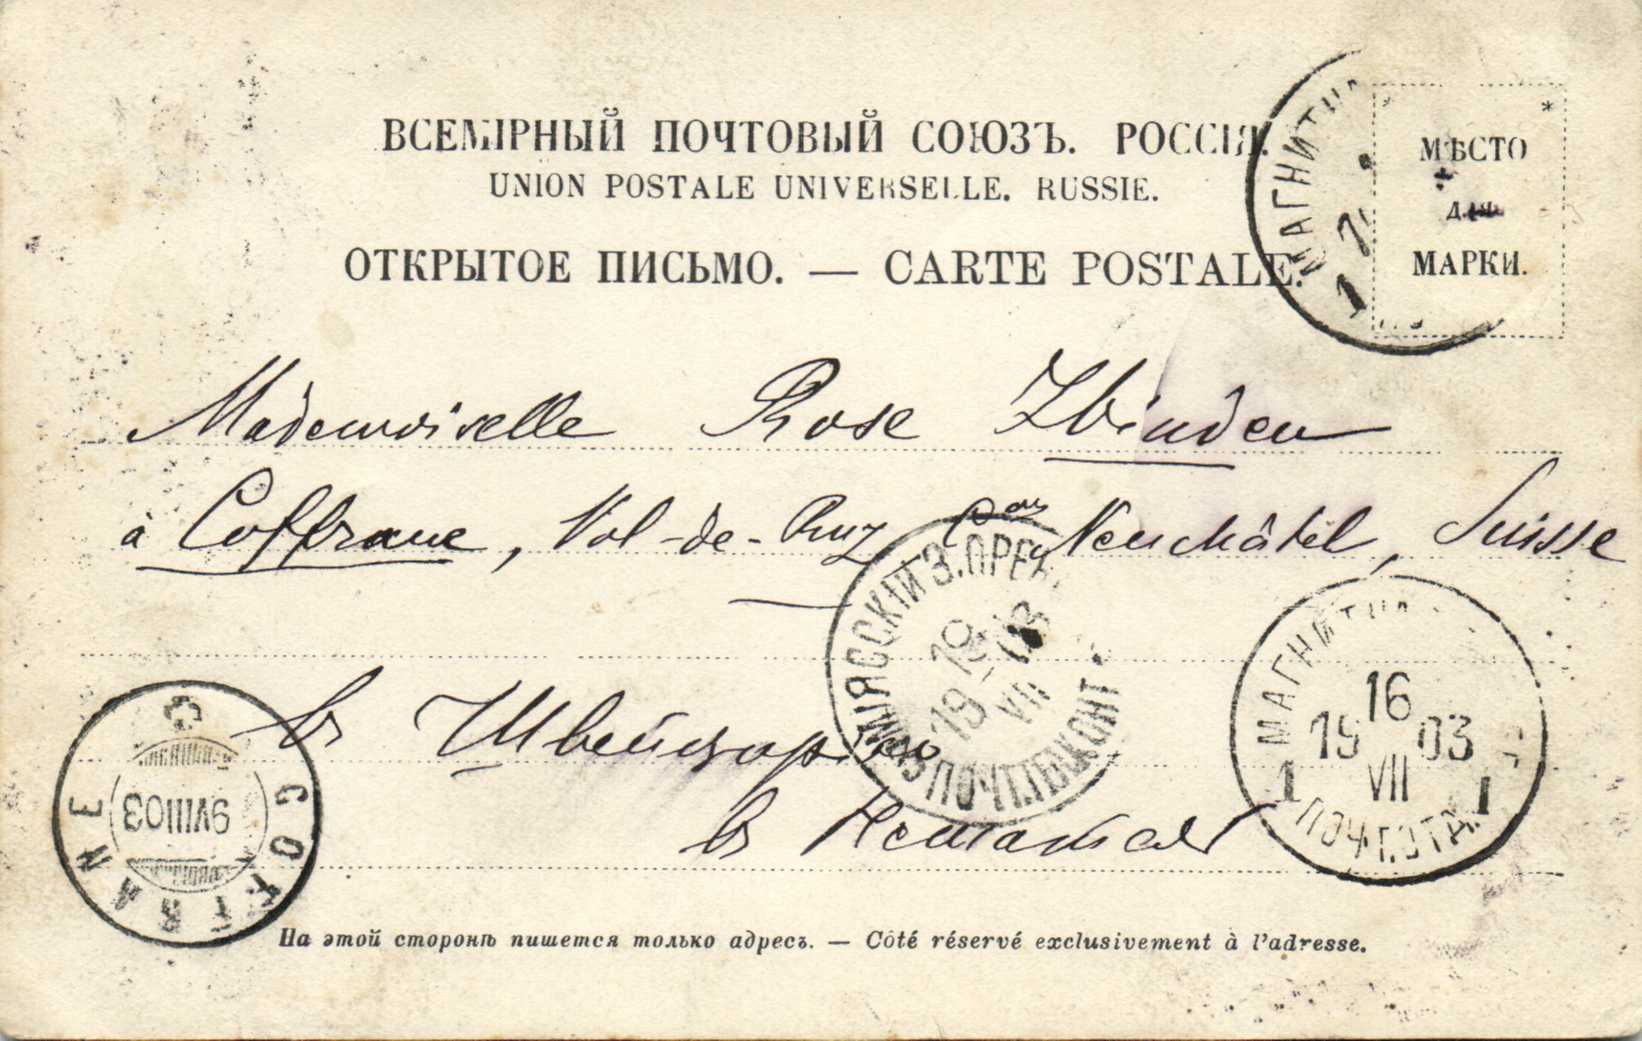 ВСЕМІРНЫЙ ПОЧТОВЫЙ СОЮЗЪ. РОССІЯ.
UNION POSTALE UNIVERSELLE. RUSSIE.
ОТКРЫТОЕ ПИСЬМО. — CARTE POSTALE.
МѢСТО
ДЛЯ
МАРКИ.
МАГНИТН
Mademoiselle Rose Zbinden
à Coffrane, Val-de-Ruz Con Neuchâtel, Suisse
МІЯССКІЙ З. ПРЕ
19 03
19 VII
ПОЧТ. КОНТ
въ Швейцарію
въ
МАГНИТ
16
19 03
VII
1 1
ПОЧ. Т. ОТД.
COFFRANE
9 VIII 03
На этой сторонѣ пишется только адресъ. — Côté réservé exclusivement à l'adresse.